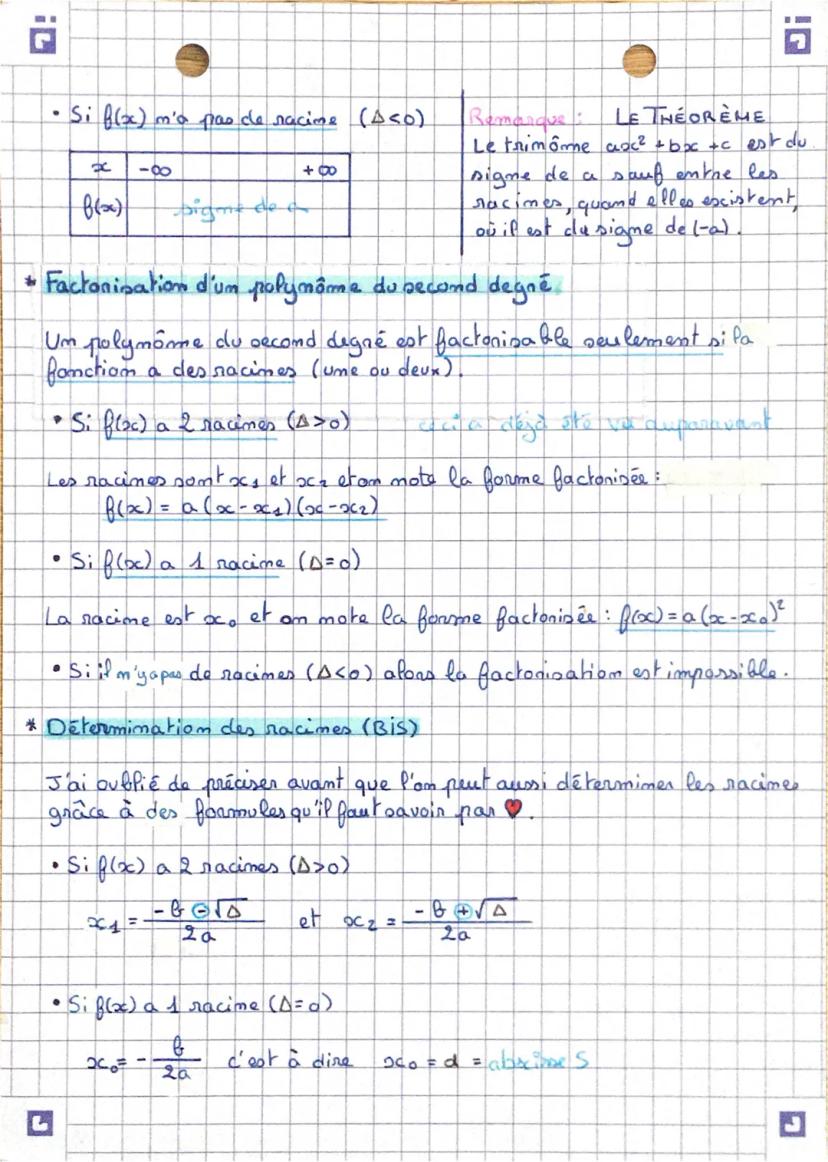 • Si f(x) n'a pas de racine (Δ<0)
x -∞ +∞
f(x) signe de a
Remarque : LE THÉORÈME
Le trinôme ax² + bx + c est du
signe de a sauf entre les
racines, quand elles existent,
où il est du signe de (-a).
* Factorisation d'un polynôme du second degré.
Un polynôme du second degré est factorisable seulement si la
fonction a des racines (une ou deux).
• Si f(x) a 2 racines (Δ>0) ceci a déjà été vu auparavant
Les racines sont x₁ et x₂ et on note la forme factorisée :
f(x) = a(x-x₁)(x-x₂)
• Si f(x) a 1 racine (Δ=0)
La racine est x₀ et on note la forme factorisée : f(x) = a(x-x₀)²
• Si il n'y a pas de racines (Δ<0) alors la factorisation est impossible.
* Détermination des racines (BiS)
J'ai oublié de préciser avant que l'on peut aussi déterminer les racines
grâce à des formules qu'il faut savoir par ♥.
• Si f(x) a 2 racines (Δ>0)
x₁ = (-b ⊖ √Δ)/2a et x₂ = (-b ⊕ √Δ)/2a
• Si f(x) a 1 racine (Δ=0)
x₀ = - b/2a c'est à dire x₀ = α = abscisse S